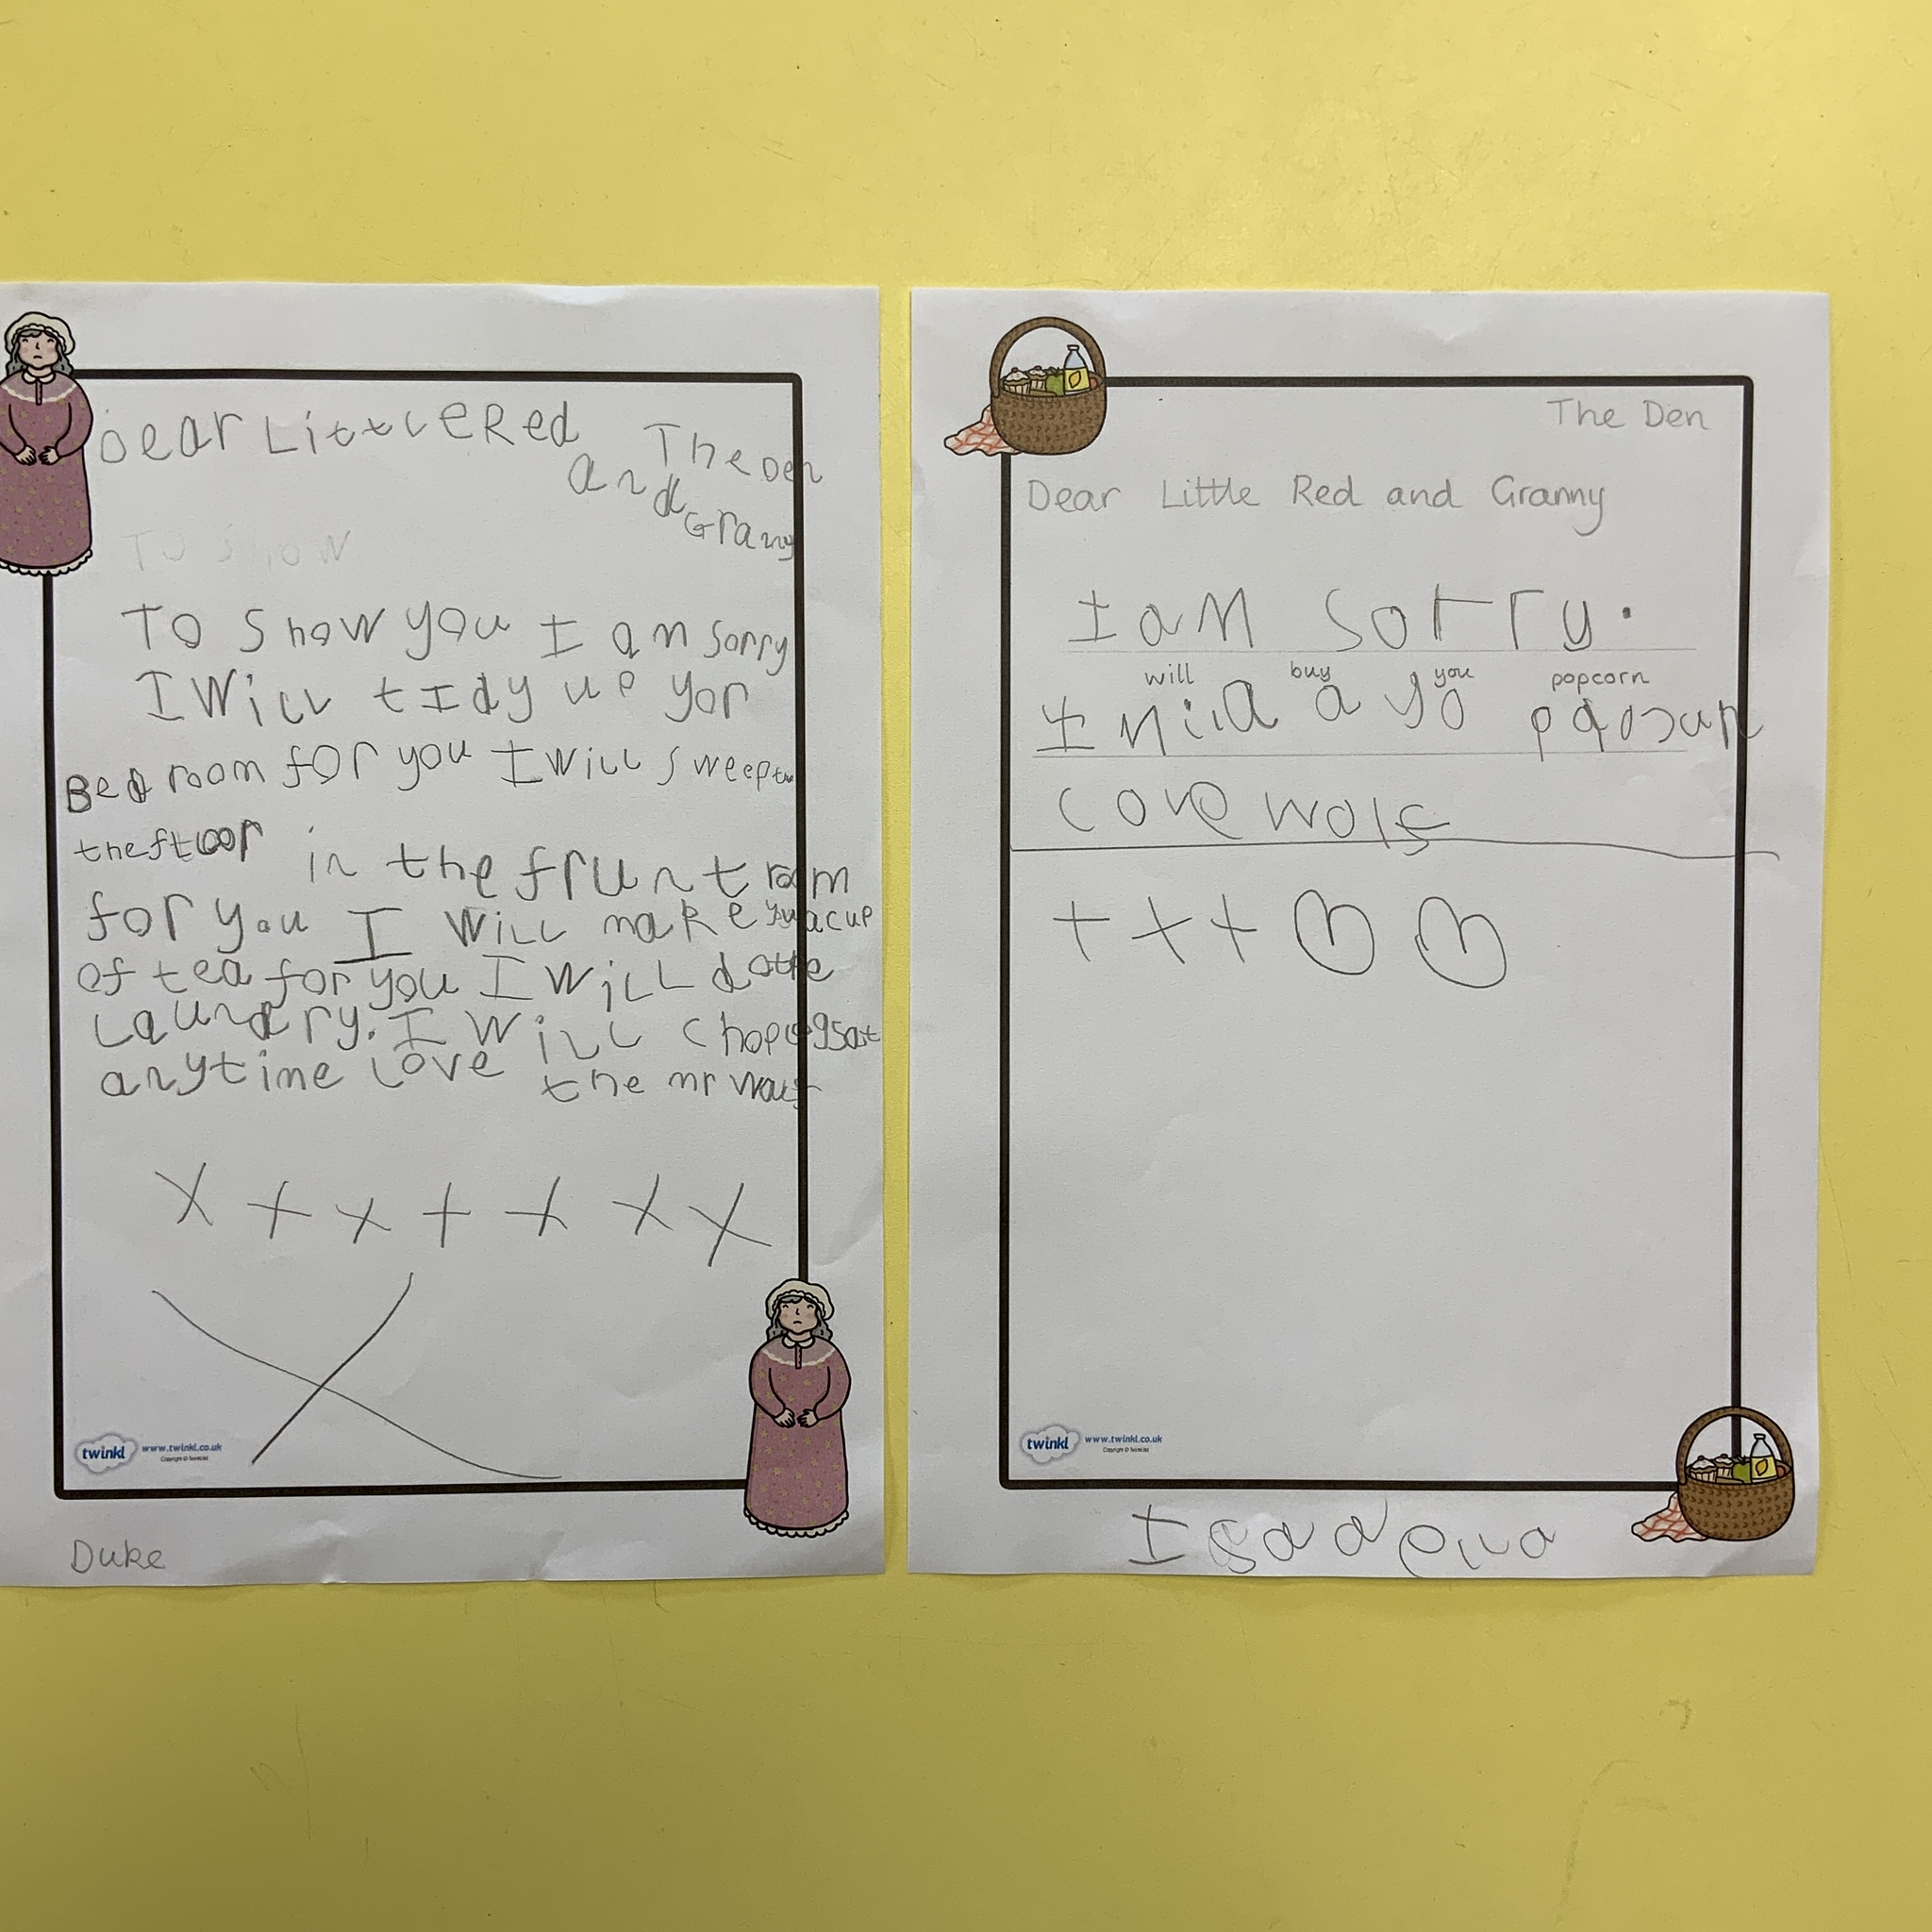 Dear Little Red
The Den
and
Granny
To show
To show you I am sorry
I will tIdy up yor
Bed room for you I will sweep
the floor in the frunt room
for you I will make you a cup
of tea for you I will do the
laundry. I will chop logs at
anytime love the mr wolf
x x x x x x x
twinkl www.twinkl.co.uk
Duke
The Den
Dear Little Red and Granny
I am sorry.
will buy you popcorn
I
love wolf
+ + +
twinkl www.twinkl.co.uk